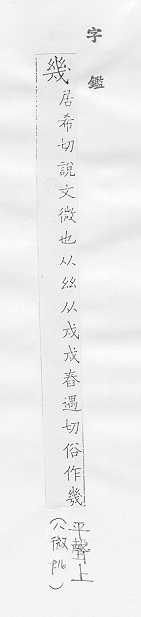 字鑑
幾居希切說文微也从𢆶从戍戍舂遇切俗作㡬
平聲上
(八微 P16)